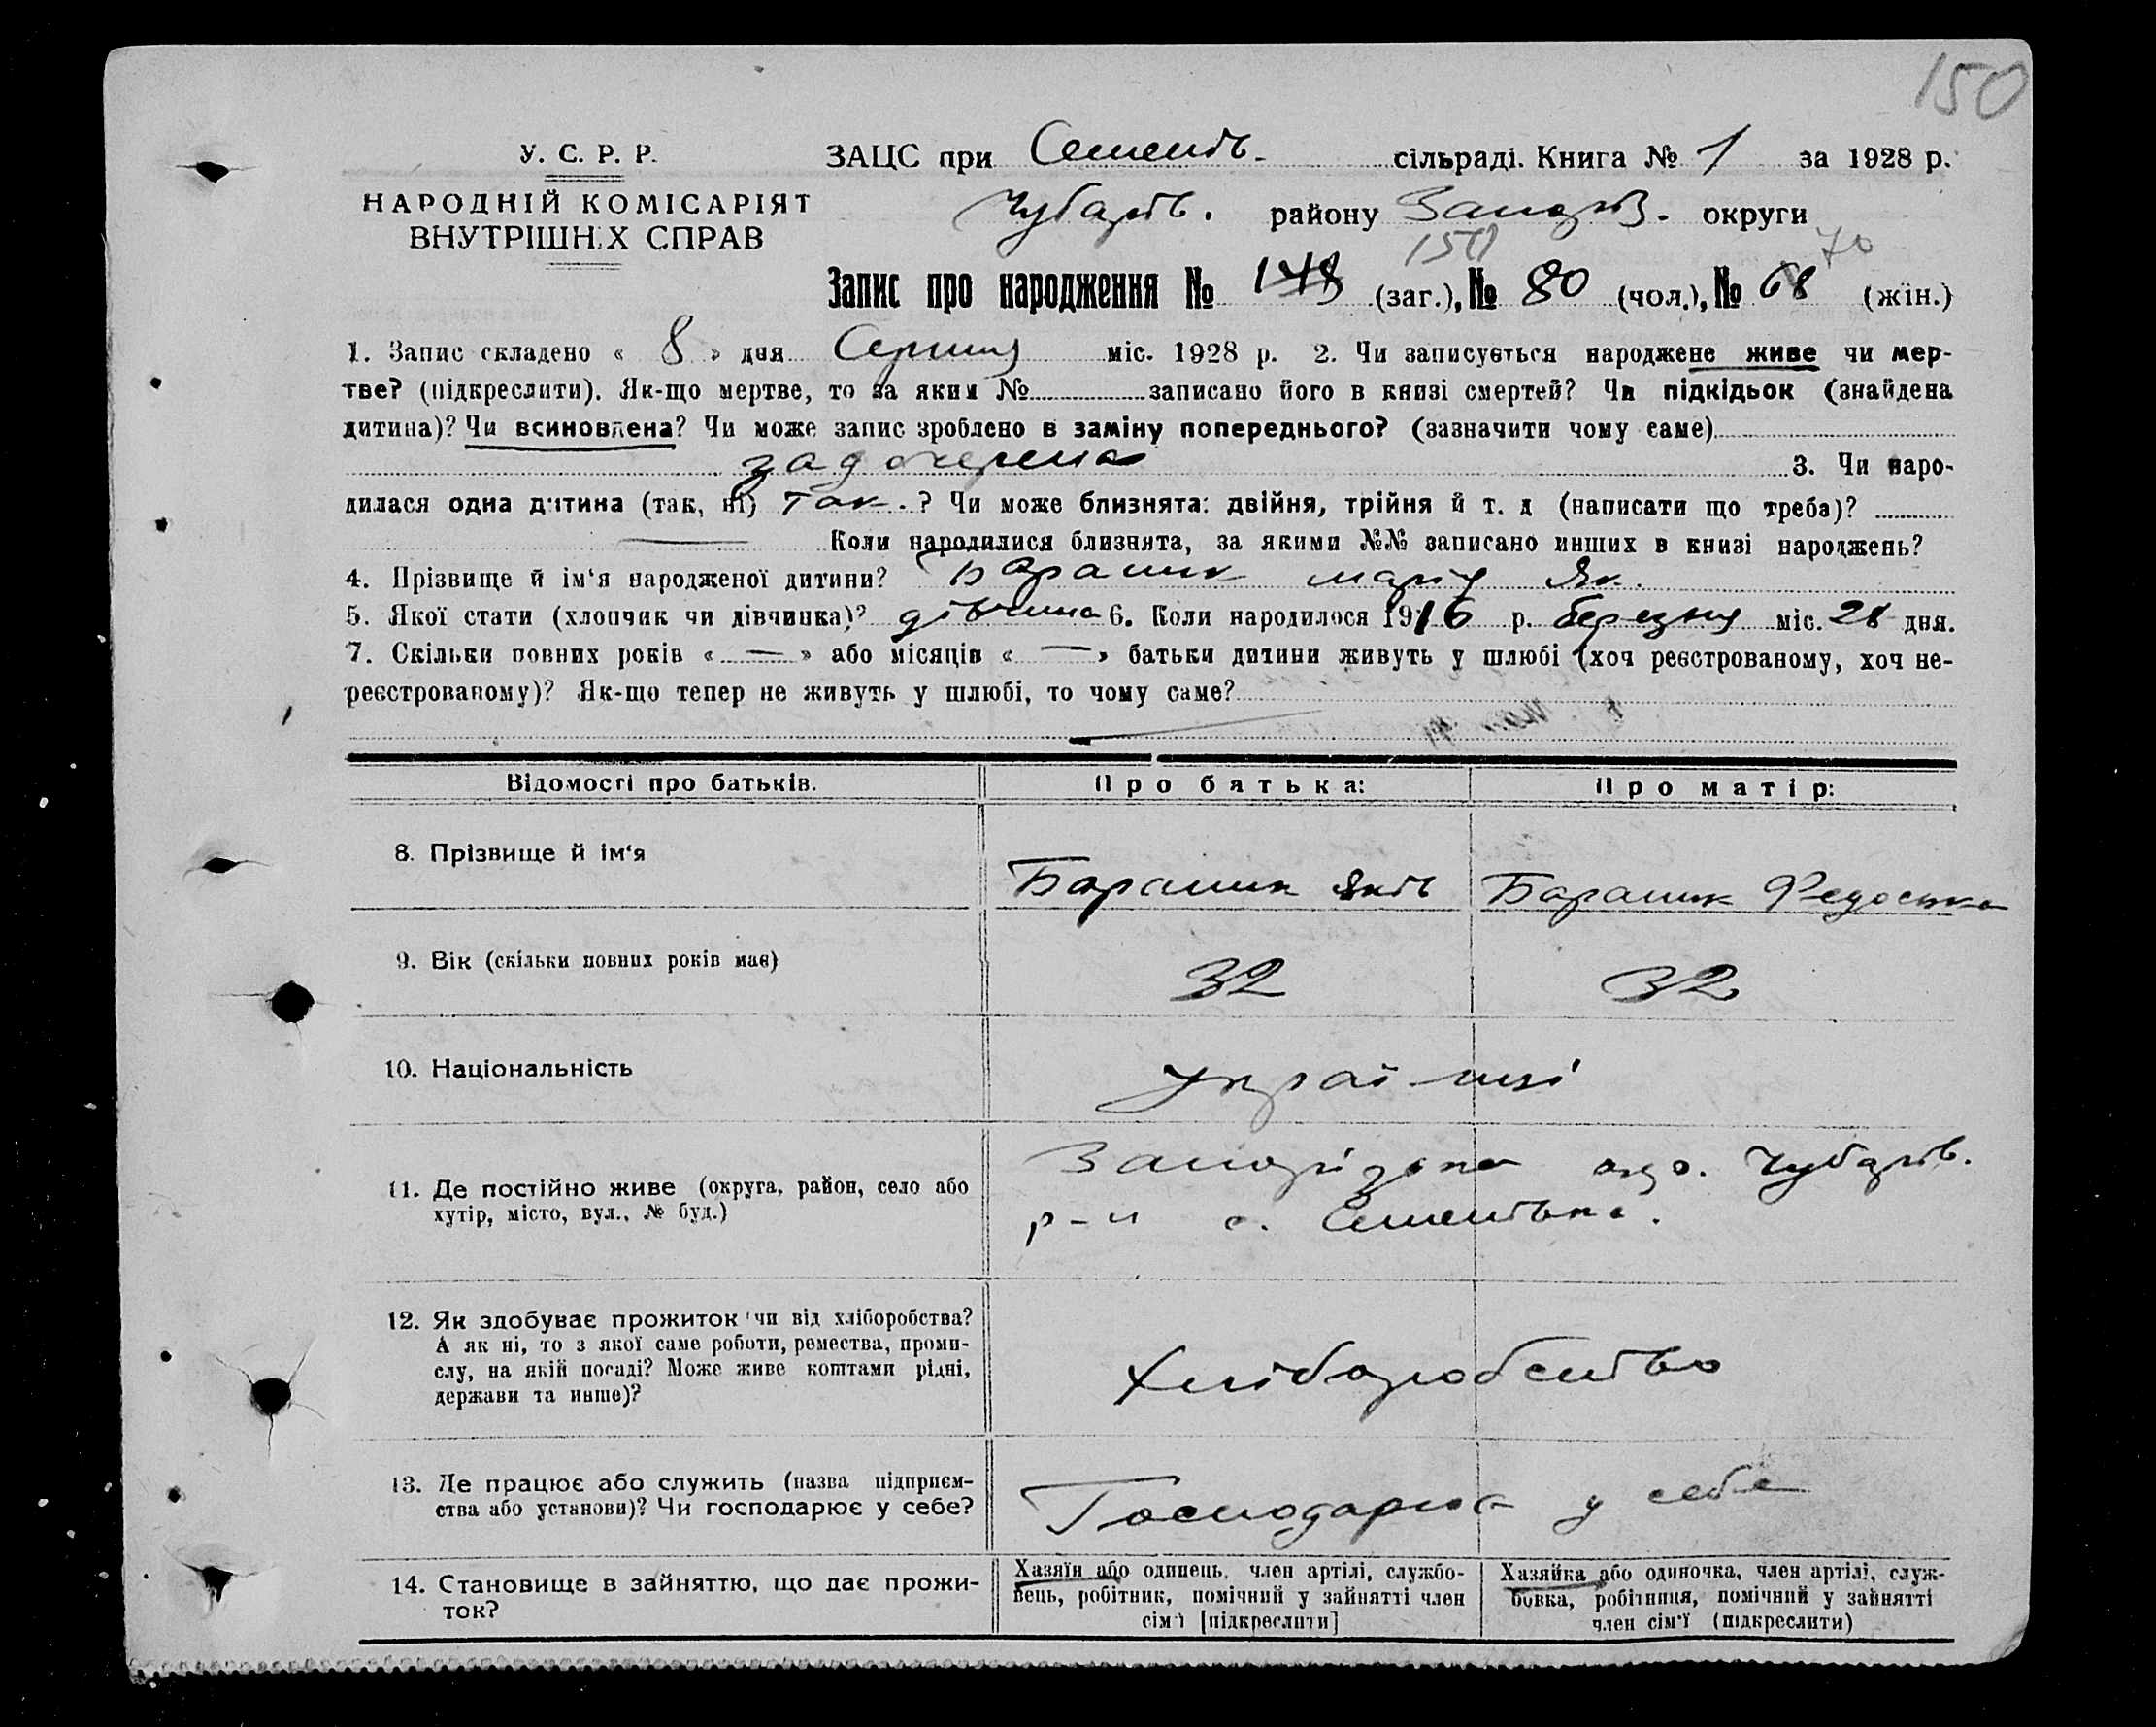 150
У. С. Р. Р.
НАРОДНІЙ КОМІСАРІЯТ
ВНУТРІШНІХ СПРАВ
ЗАЦС при Семенів. сільраді. Книга № 1 за 1928 р.
Чубарів. району Запоріз. округи
150 70
Запис про народження № 148 (заг.), № 80 (чол.), № 68 (жін.)
1. Запис складено « 8 » дня Серпня міс. 1928 р. 2. Чи записується народжене живе чи мер-
тве? (підкреслити). Як-що мертве, то за яким № записано його в книзі смертей? Чи підкідьок (знайдена
дитина)? Чи всиновлена? Чи може запис зроблено в заміну попереднього? (зазначити чому саме)
задочерена 3. Чи наро-
дилася одна дитина (так, ні) так. ? Чи може близнята: двійня, трійня й т. д (написати що треба)?
— Коли народилися близнята, за якими №№ записано инших в книзі народжень?
4. Прізвище й ім‘я народженої дитини? Бараник Марія Як.
5. Якої стати (хлопчик чи дівчинка)? дівчина 6. Коли народилося 1916 р. березня міс. 28 дня.
7. Скільки повних років « — » або місяців « — » батьки дитини живуть у шлюбі (хоч реєстрованому, хоч не-
реєстрованому)? Як-що тепер не живуть у шлюбі, то чому саме?
Відомості про батьків. Про батька: Про матір:
8. Прізвище й ім‘я Бараник Яків Бараник Федоська
9. Вік (скільки повних років має) 32 32
10. Національність українці
11. Де постійно живе (округа, район, село або Запорізька окр. Чубарів.
хутір, місто, вул., № буд.) р-н с. Семенівка.
12. Як здобуває прожиток чи від хліборобства?
А як ні, то з якої саме роботи, ремества, проми-
слу, на якій посаді? Може живе коштами рідні, Хліборобство
держави та инше)?
13. Де працює або служить (назва підприєм-
ства або установи)? Чи господарює у себе? Господарює у себе
14. Становище в зайняттю, що дає прожи-
ток?
Хазяїн або одинець, член артілі, службо-
вець, робітник, помічний у зайнятті член
сім‘ї [підкреслити]
Хазяйка або одиночка, член артілі, служ-
бовка, робітниця, помічний у зайнятті
член сім‘ї (підкреслити)